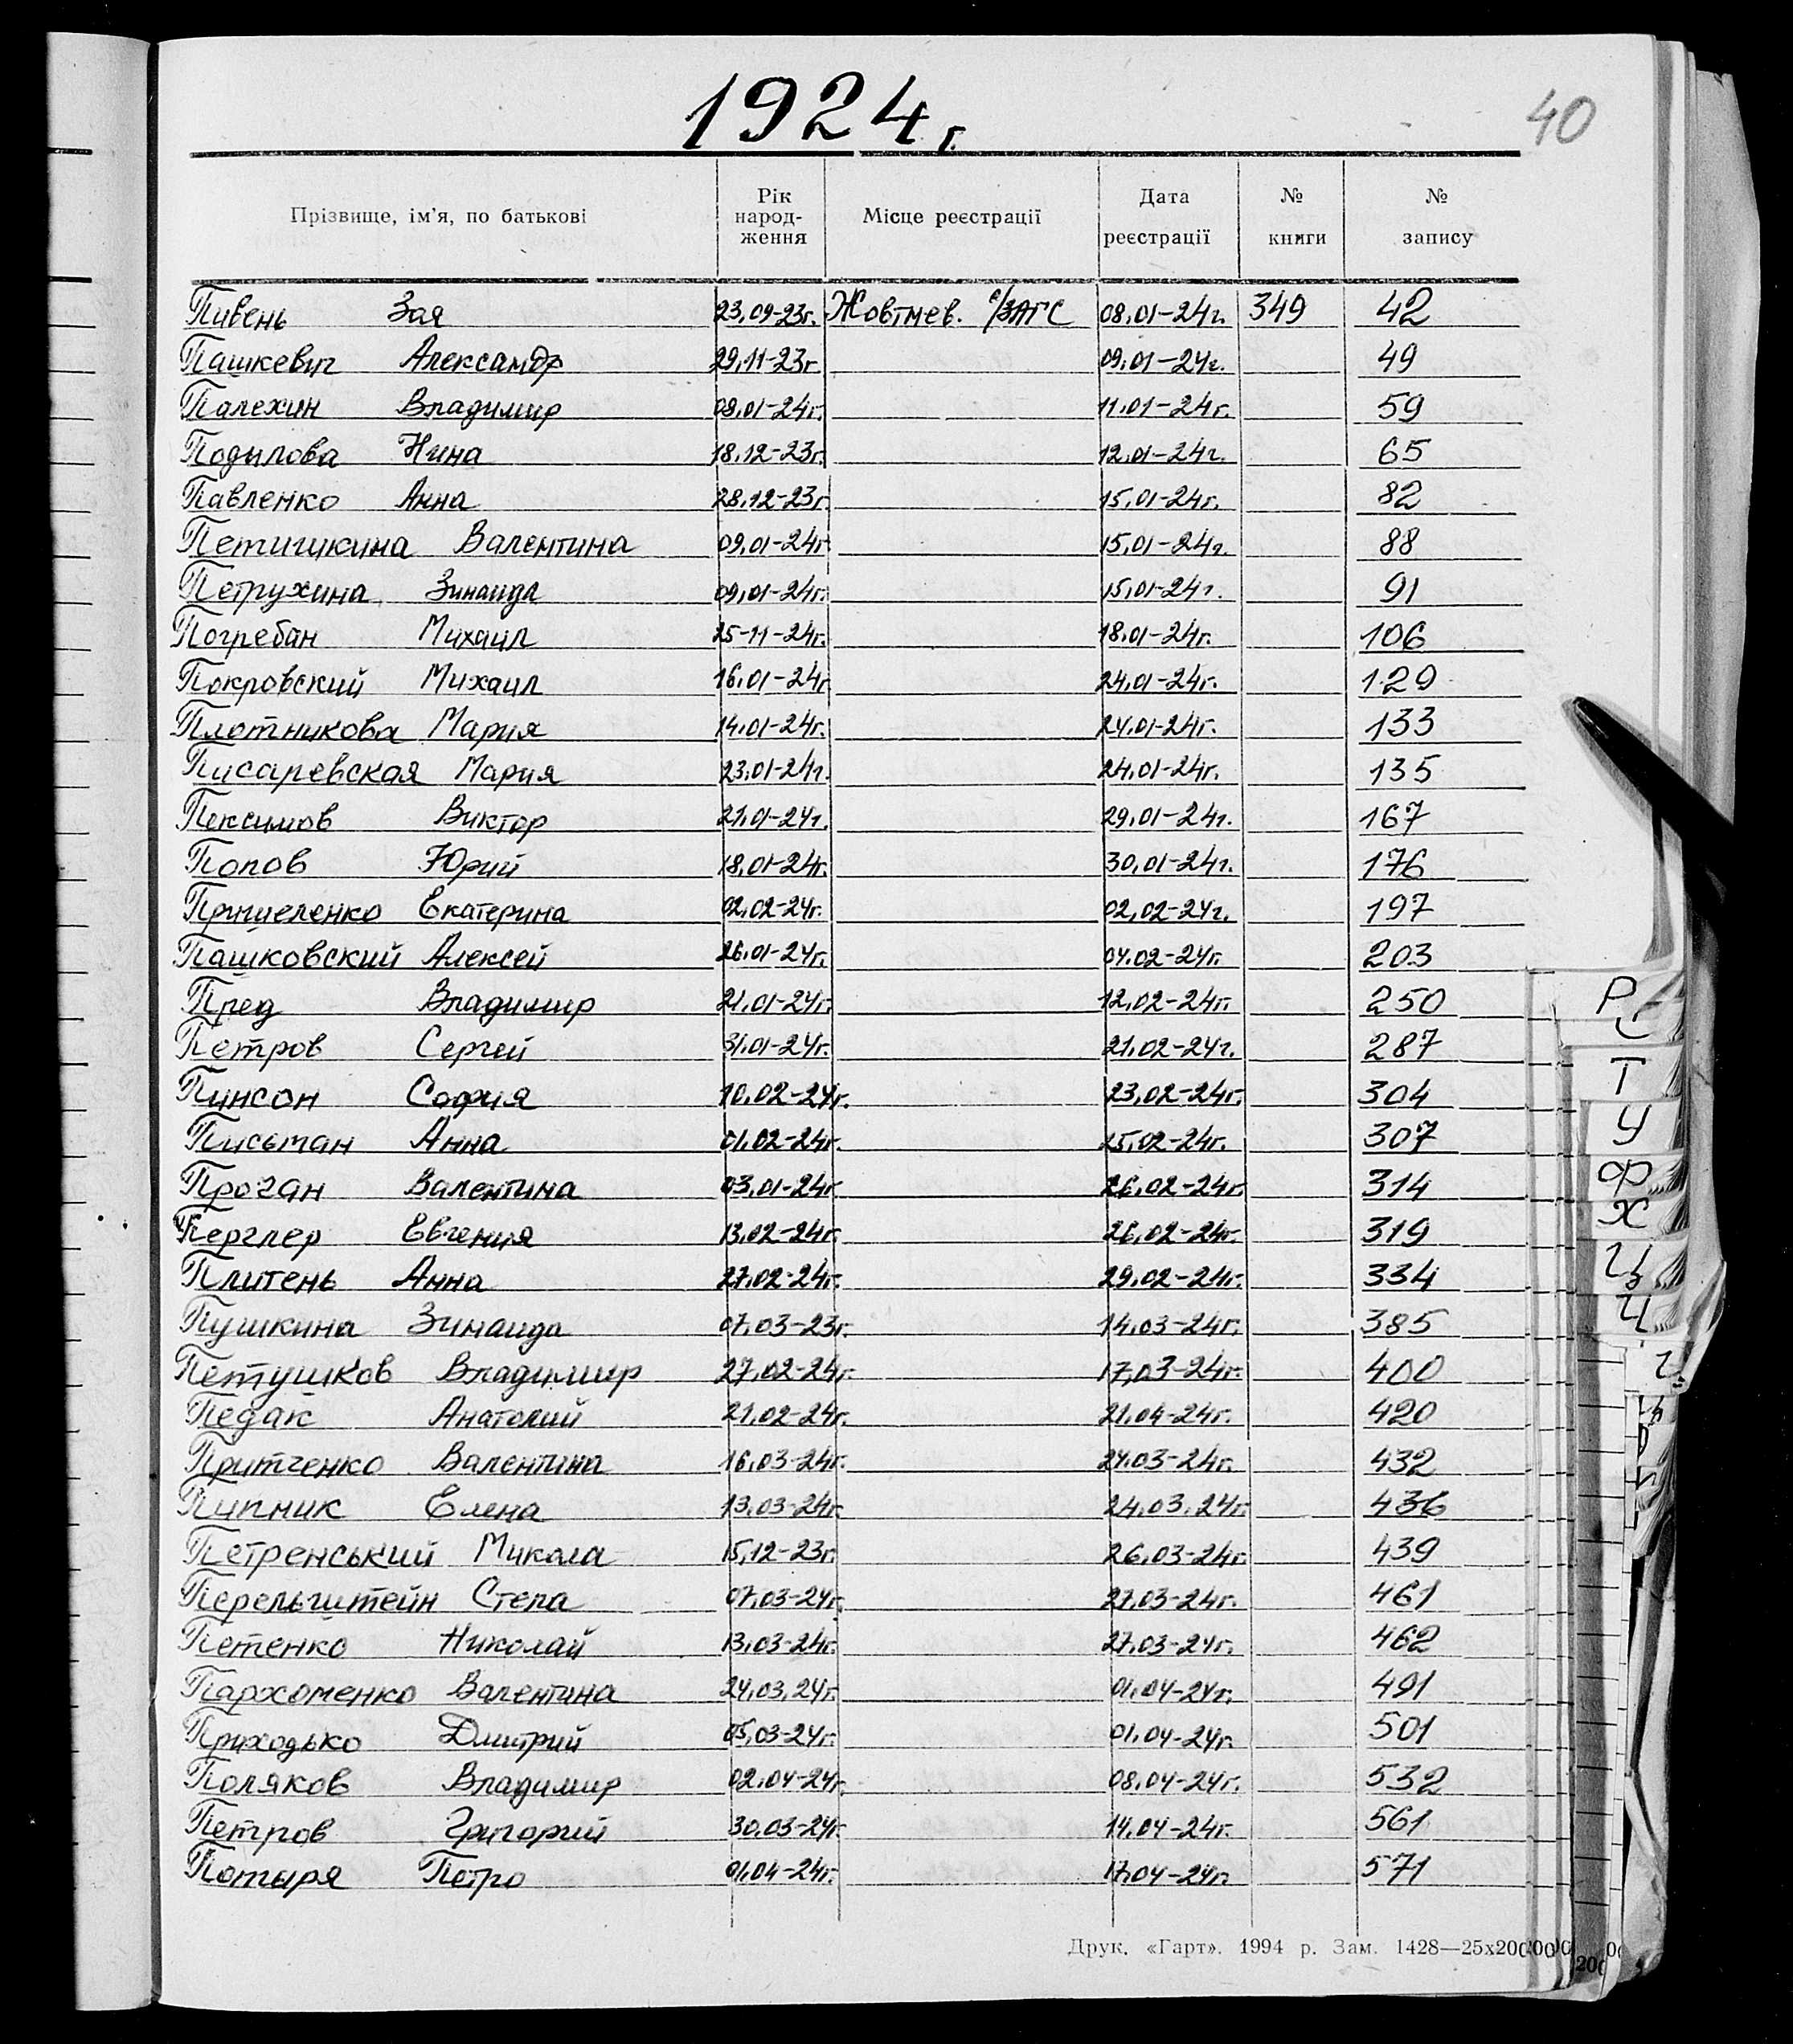 1924 г.
40
Прізвище, ім'я, по батькові Рік народ- ження Місце реєстрації Дата реєстрації № книги № запису
Пивень Зая 23.09-23г. Жовтнев. с/ЗАГС 08.01-24г. 349 42
Пашкевич Александр 29.11-23г 09.01-24г. 49
Палехин Владимир 08.01-24г. 11.01-24г. 59
Подылова Нина 18.12-23г. 12.01-24г. 65
Павленко Анна 28.12-23г. 15.01-24г. 82
Петишкина Валентина 09.01-24г 15.01-24г. 88
Петрухина Зинаида 09.01-24г. 15.01-24г. 91
Погребан Михаил 25-11-24г. 18.01-24г. 106
Покровский Михаил 16.01-24г 24.01-24г. 129
Плотникова Мария 14.01-24г. 24.01-24г. 133
Писаревская Мария 23.01-24г. 24.01-24г. 135
Пексимов Виктор 21.01-24г. 29.01-24г. 167
Попов Юрий 18.01-24г. 30.01-24г. 176
Пришеленко Екатерина 02.02-24г. 02.02-24г. 197
Пашковский Алексей 26.01-24г. 04.02-24г. 203
Пред Владимир 21.01-24г. 12.02-24г. 250
Петров Сергей 31.01-24г. 21.02-24г. 287
Пинсон София 10.02-24г. 23.02-24г. 304
Письман Анна 01.02-24г. 25.02-24г. 307
Проган Валентина 03.01-24г 26.02-24г. 314
Перглер Евгения 13.02-24г. 26.02-24г. 319
Плитень Анна 27.02-24г. 29.02-24г. 334
Пушкина Зинаида 07.03-23г. 14.03-24г. 385
Петушков Владимир 27.02-24г. 17.03-24г. 400
Педак Анатолий 21.02-24г. 21.04-24г. 420
Притченко Валентина 16.03-24г. 24.03-24г. 432
Пипник Елена 13.03-24г. 24.03.24г. 436
Петренський Микола 15.12-23г. 26.03-24г. 439
Перельштейн Степа 07.03-24г. 27.03-24г. 461
Петенко Николай 13.03-24г. 27.03-24г. 462
Пархоменко Валентина 24.03.24г. 01.04-24г. 491
Приходько Дмитрий 05.03-24г. 01.04-24г. 501
Поляков Владимир 02.04-24г. 08.04-24г. 532
Петров Григорий 30.03-24г. 14.04-24г. 561
Потыря Петро 01.04-24г. 17.04-24г. 571
Р
С
Т
У
Ф
Х
Ц
Ч
Друк. «Гарт». 1994 р. Зам. 1428—25х200